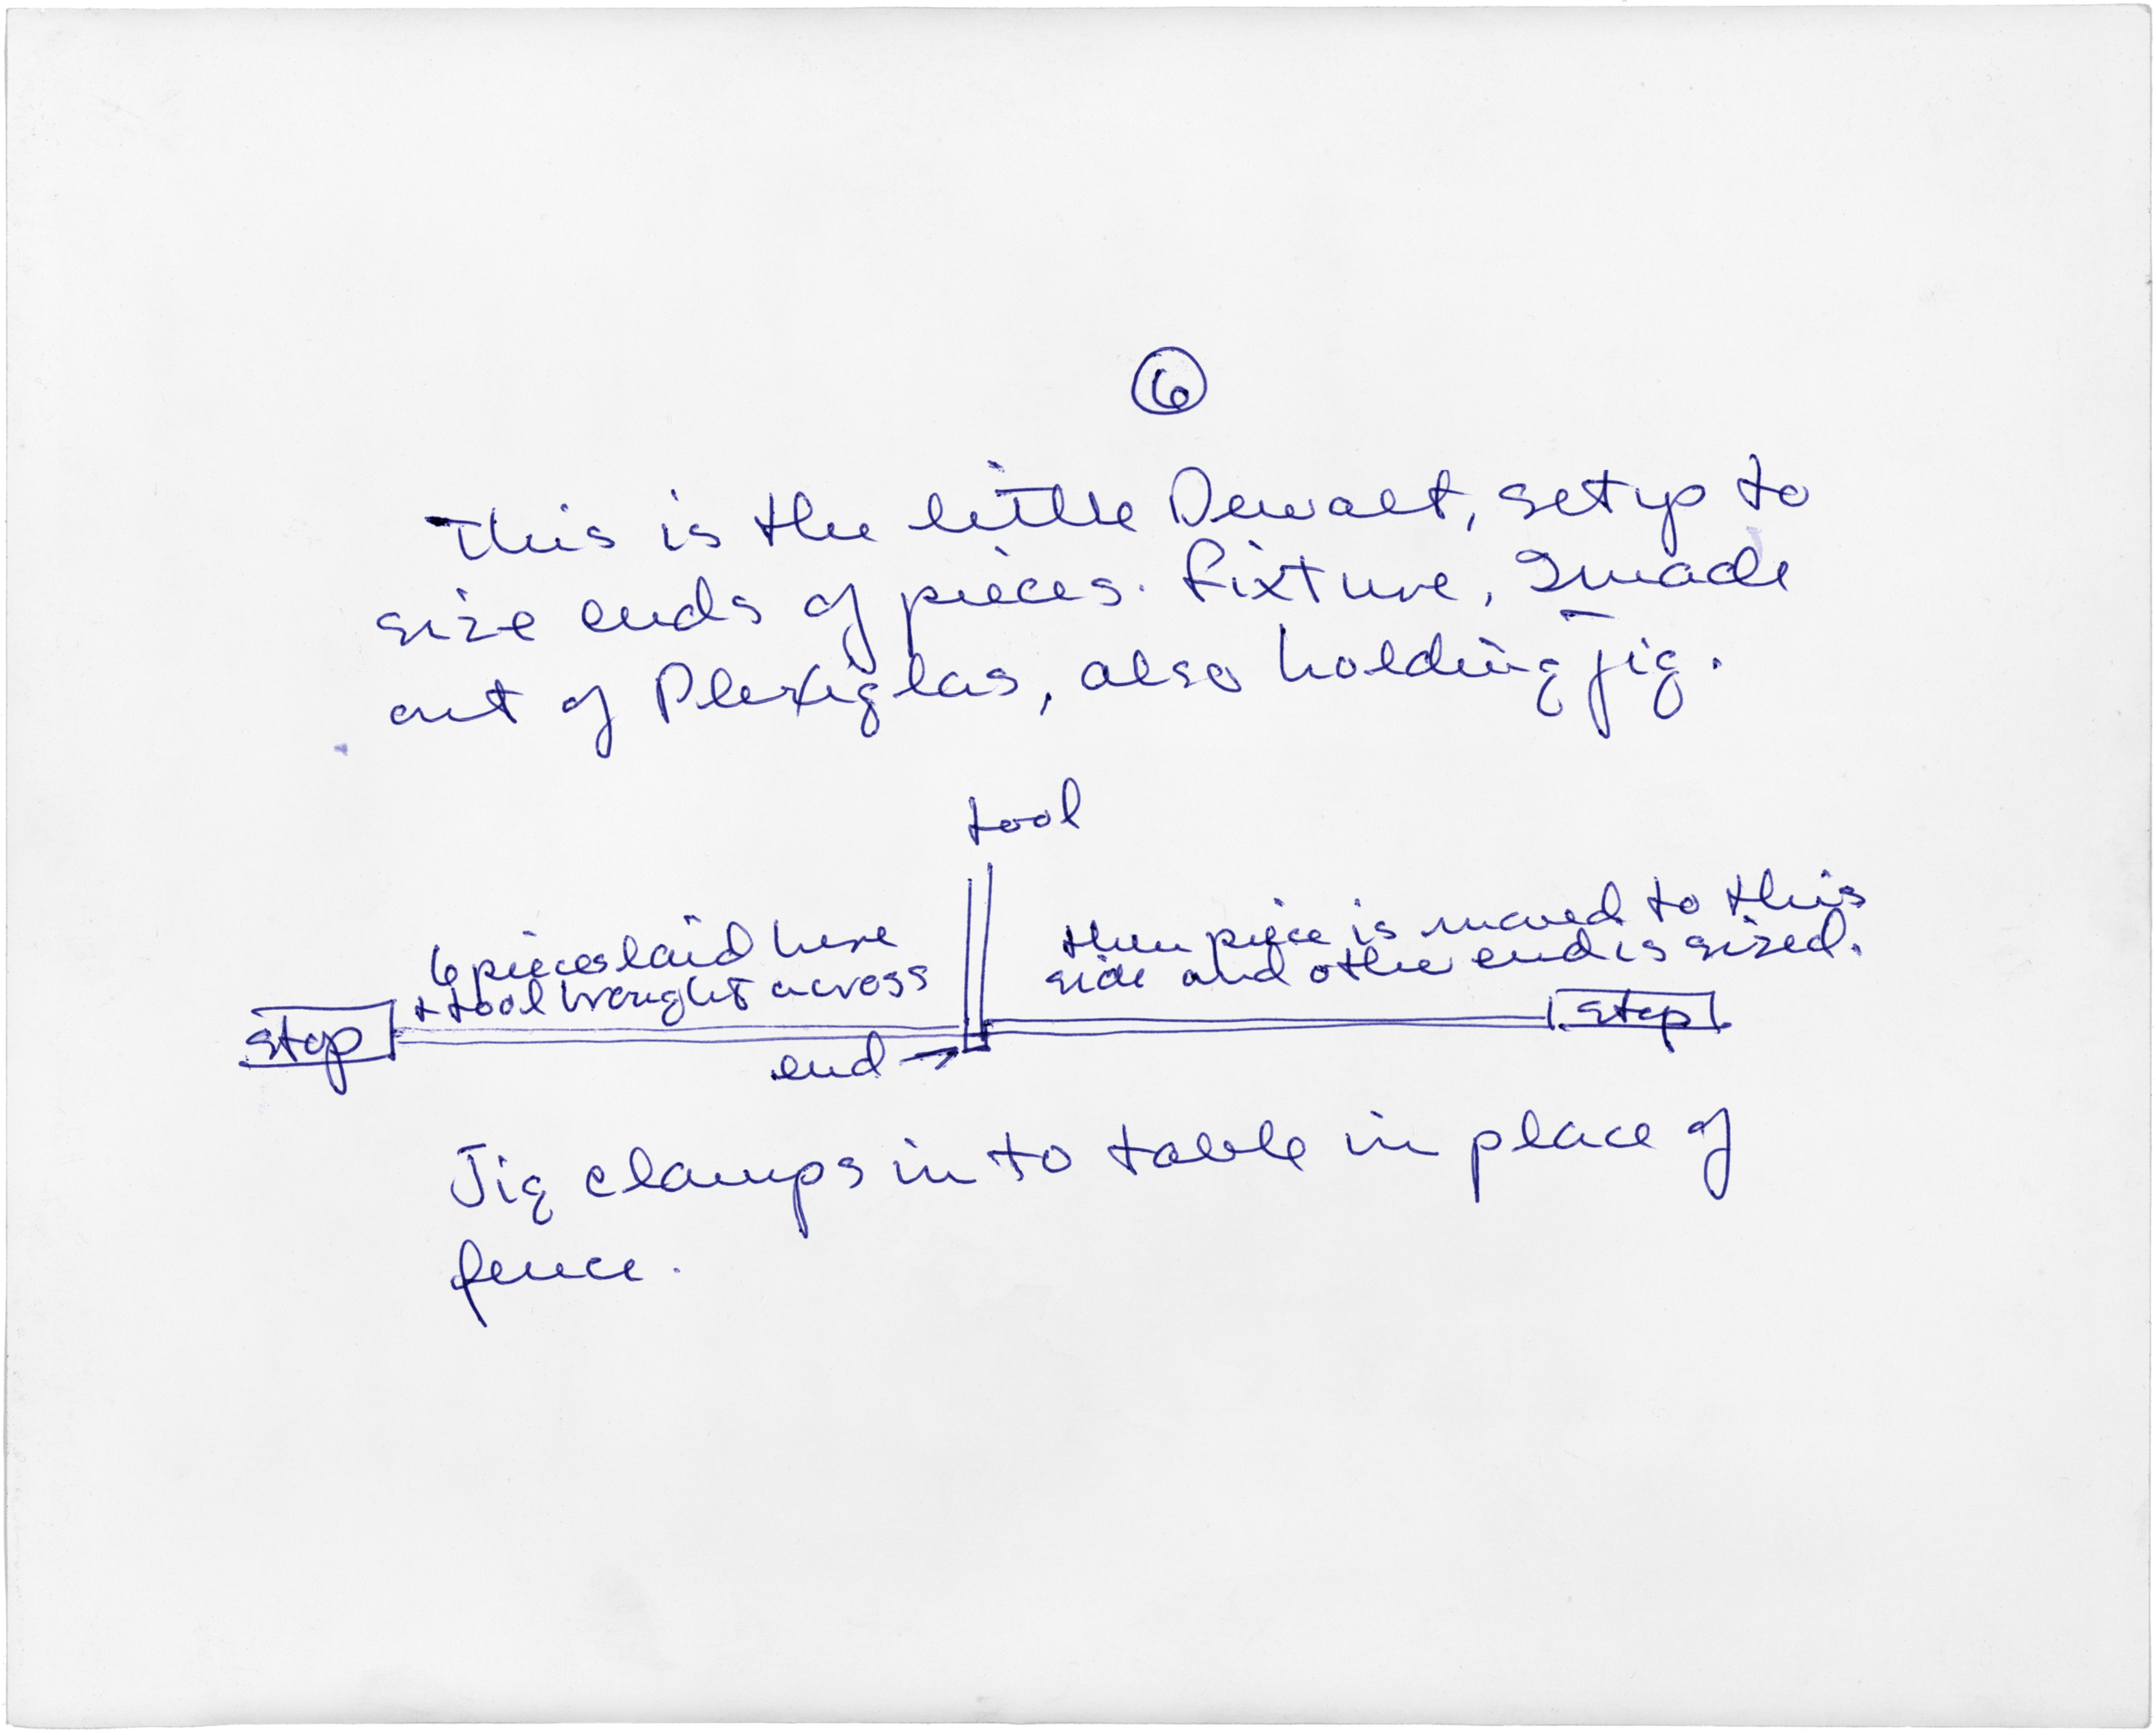 6
This is the little Dewalt, setup to
size ends of pieces. Fixture, I made
out of Plexiglas, also holding jig.
tool
6 pieces laid here
+ tool brought across
then piece is moved to this
side and other end is sized.
stop
stop
end →
Jig clamps in to table in place of
fence.